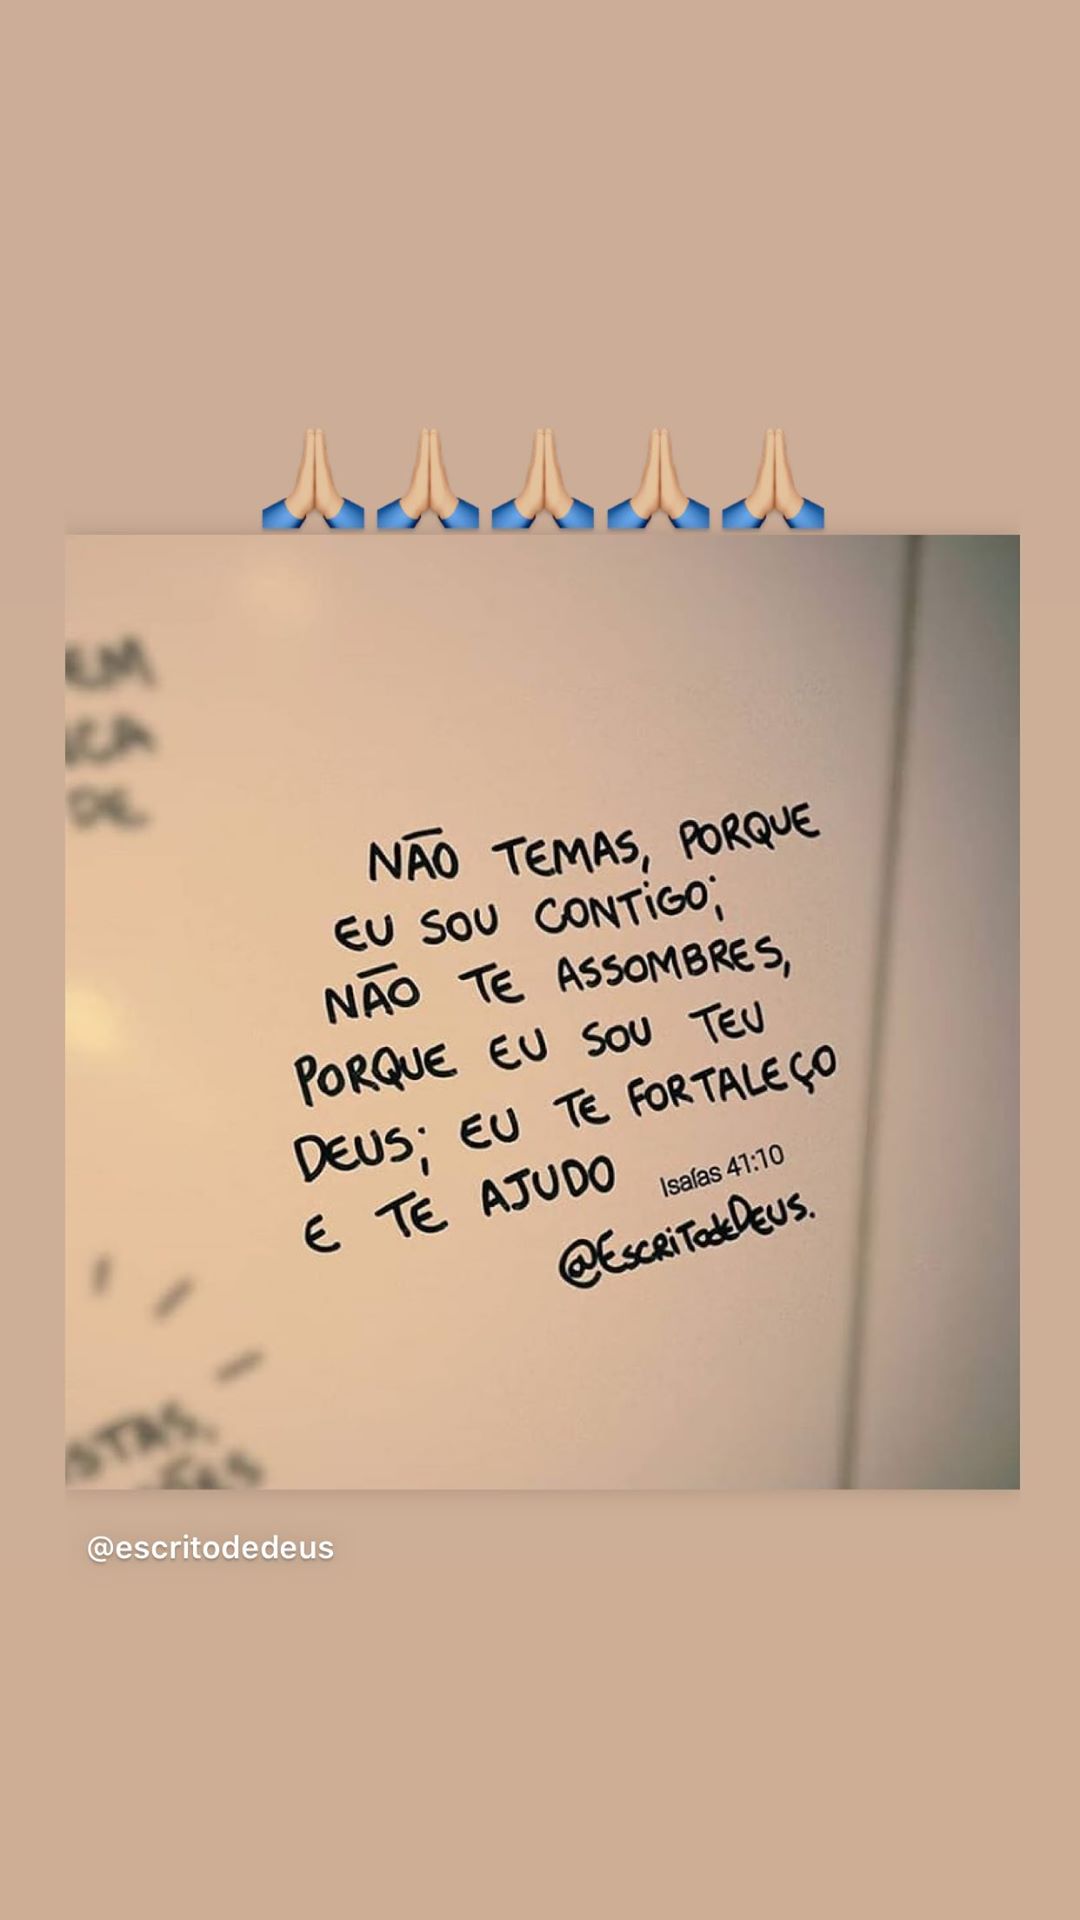 🙏🏼🙏🏼🙏🏼🙏🏼🙏🏼
EM
DE
NÃO TEMAS, PORQUE
EU SOU CONTIGO;
NÃO TE ASSOMBRES,
PORQUE EU SOU TEU
DEUS; EU TE FORTALEÇO
E TE AJUDO
Isaías 41:10
@ESCRITODEDEUS.
@escritodedeus